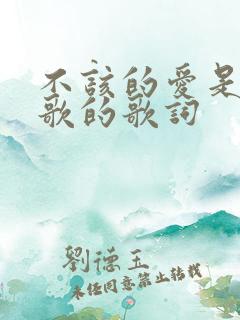 不該的愛是
歌的歌詞
劉德玉
未經同意禁止轉載